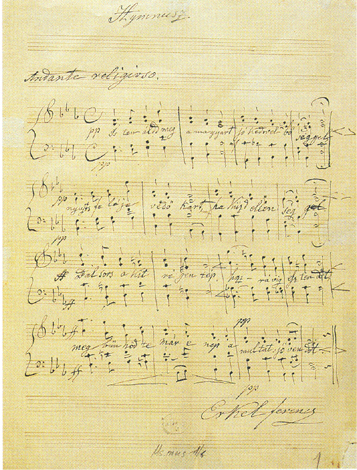 Hymnusz.
Andante religioso.
pp
Isten áldd meg a magyart jó kedvel bő séggel
pp
pp
nyujts fe léje védő kart, ha küzd ellen
pp
ff Bal sors a kit re gen tép, hoz rá víg esz ten dőt
ff
pp
ff meg bűn hőd te már e nép a multat jö ven dőt
ff
pp
Erkel ferencz